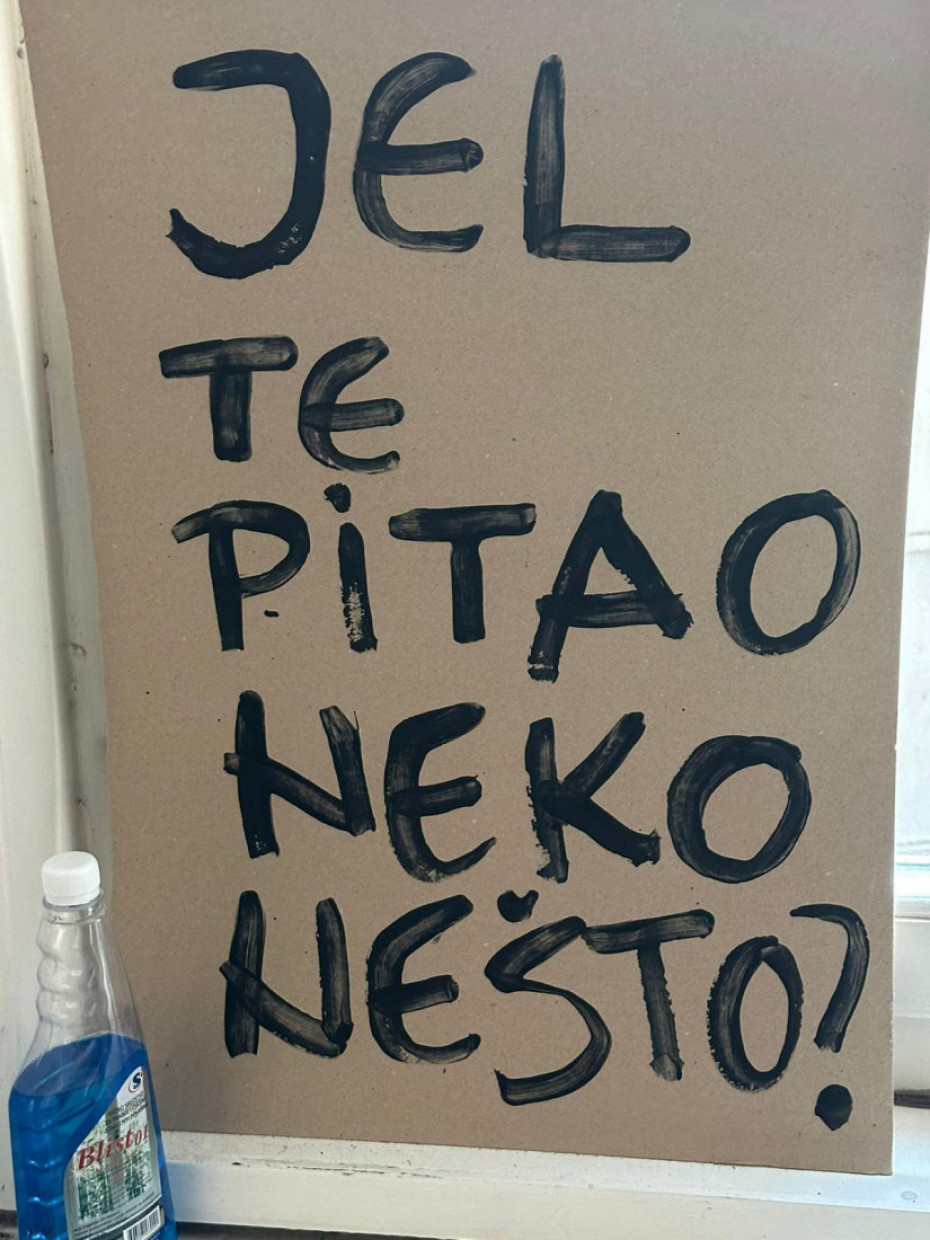 JEL
TE
PiTAO
NEKO
NEŠTO?
S
Blistol